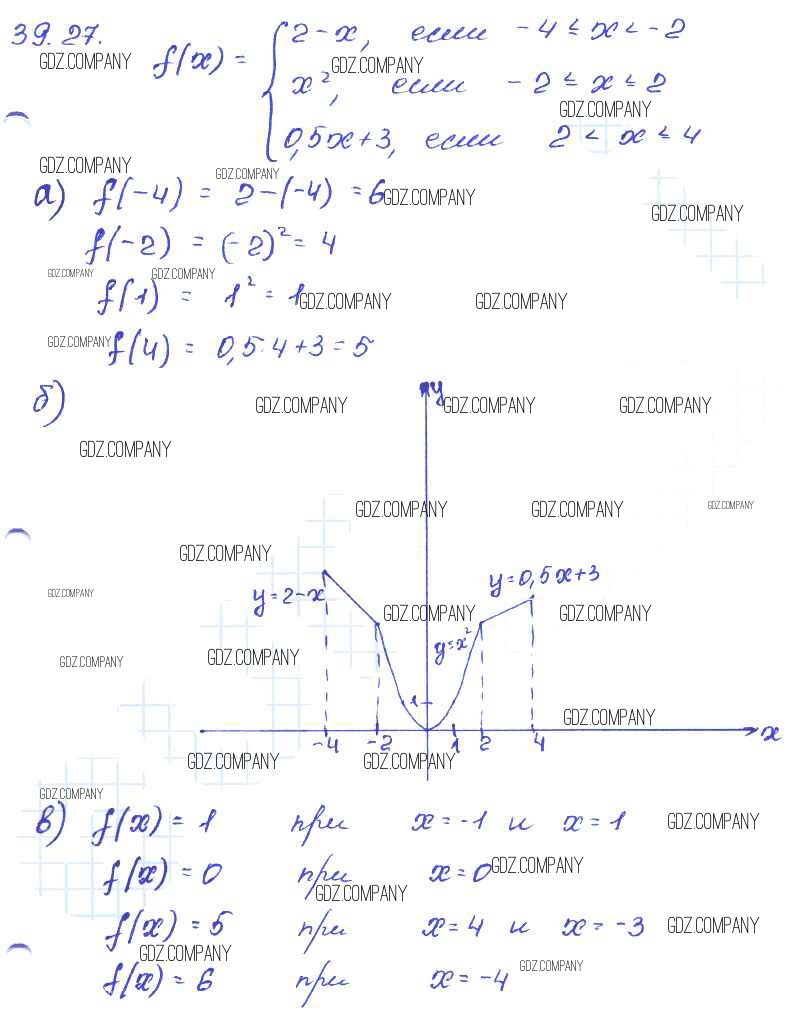 39.27.
f(x) = { 2-x, если -4 ≤ x < -2
GDZ.COMPANY GDZ.COMPANY
x², если -2 ≤ x ≤ 2
GDZ.COMPANY
0,5x+3, если 2 < x ≤ 4
GDZ.COMPANY GDZ.COMPANY
а) f(-4) = 2-(-4) = 6 GDZ.COMPANY
GDZ.COMPANY
f(-2) = (-2)² = 4
GDZ.COMPANY GDZ.COMPANY
f(1) = 1² = 1 GDZ.COMPANY GDZ.COMPANY
GDZ.COMPANY f(4) = 0,5·4+3 = 5
б) y
GDZ.COMPANY GDZ.COMPANY GDZ.COMPANY
GDZ.COMPANY
GDZ.COMPANY GDZ.COMPANY GDZ.COMPANY
GDZ.COMPANY
y=0,5x+3
GDZ.COMPANY y=2-x
GDZ.COMPANY GDZ.COMPANY
y=x²
GDZ.COMPANY GDZ.COMPANY
1
GDZ.COMPANY
x
-4 -2 1 2 4
GDZ.COMPANY GDZ.COMPANY
GDZ.COMPANY
в) f(x) = 1 при x = -1 и x = 1 GDZ.COMPANY
f(x) = 0 при x = 0 GDZ.COMPANY
GDZ.COMPANY
f(x) = 5 при x = 4 и x = -3 GDZ.COMPANY
GDZ.COMPANY GDZ.COMPANY
f(x) = 6 при x = -4